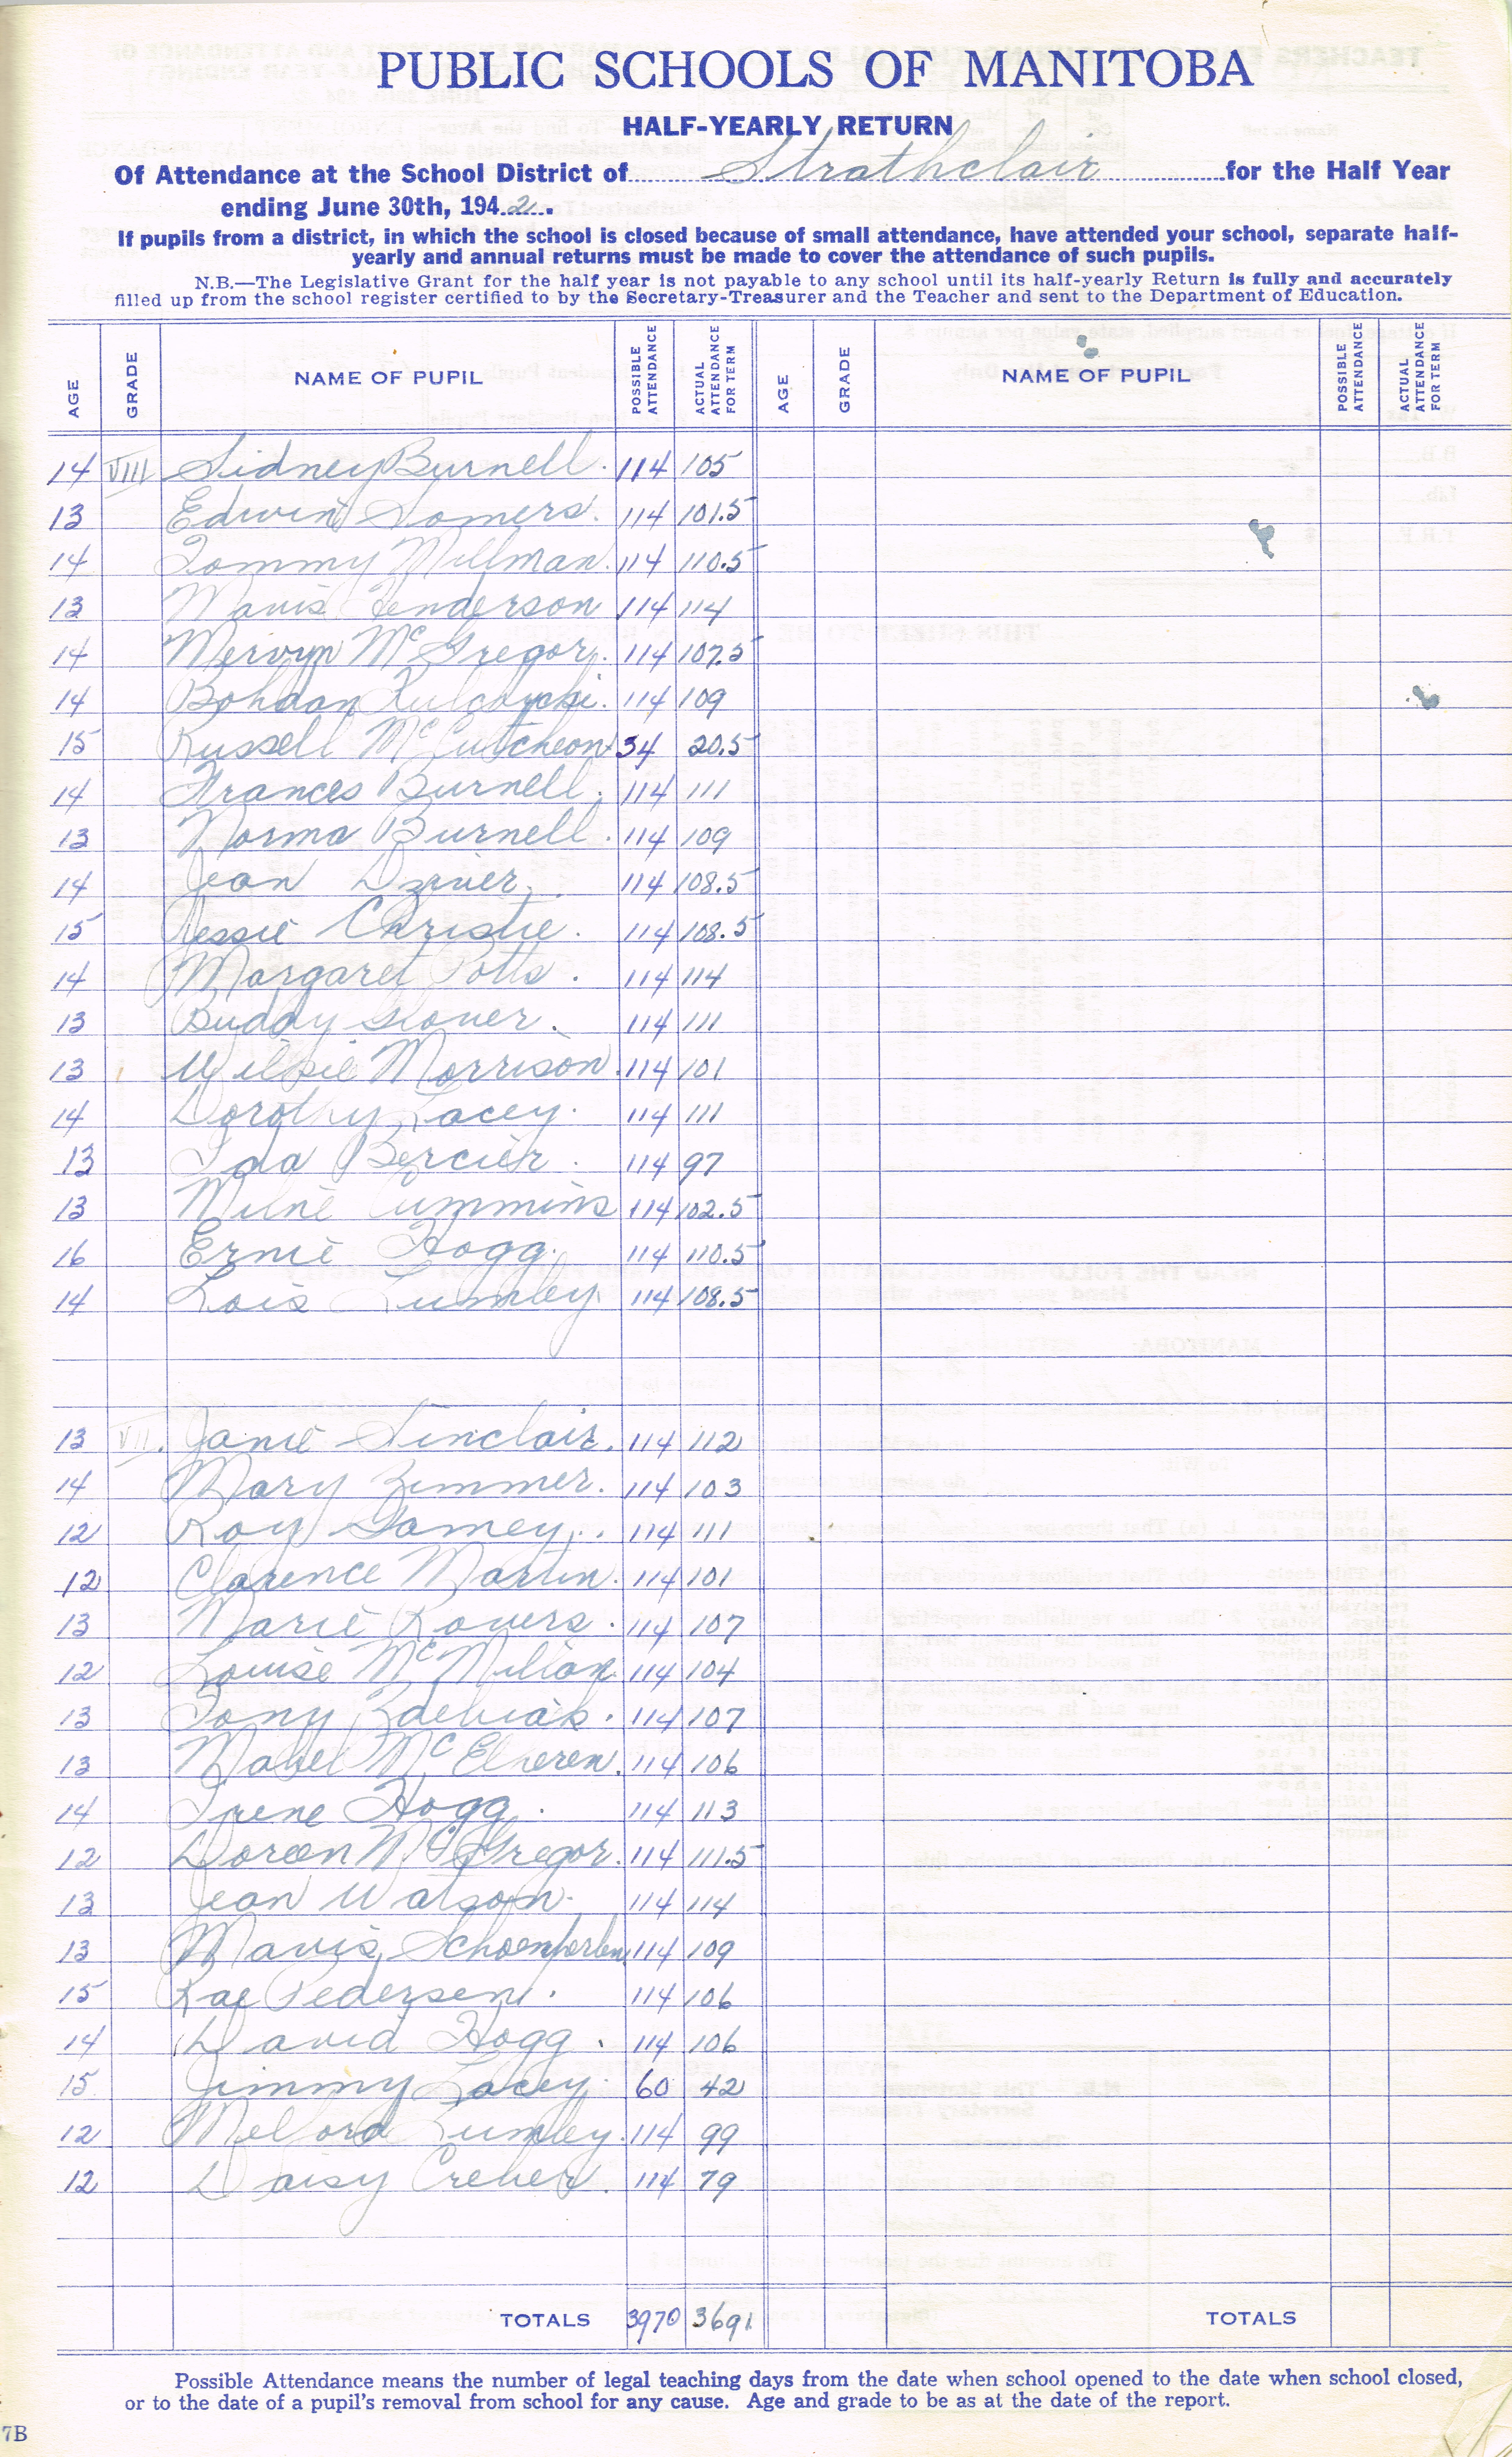 PUBLIC SCHOOLS OF MANITOBA
HALF-YEARLY RETURN
Of Attendance at the School District of Strathclair for the Half Year
ending June 30th, 1942.
If pupils from a district, in which the school is closed because of small attendance, have attended your school, separate half-
yearly and annual returns must be made to cover the attendance of such pupils.
N.B.—The Legislative Grant for the half year is not payable to any school until its half-yearly Return is fully and accurately
filled up from the school register certified to by the Secretary-Treasurer and the Teacher and sent to the Department of Education.
AGE GRADE NAME OF PUPIL POSSIBLE ATTENDANCE ACTUAL ATTENDANCE FOR TERM AGE GRADE NAME OF PUPIL POSSIBLE ATTENDANCE ACTUAL ATTENDANCE FOR TERM
14 VIII Sidney Burnell. 114 105
13 Edwin Somers. 114 101.5
14 Tommy Millman. 114 110.5
13 Mavis Henderson 114 114
14 Mervyn McGregor. 114 107.5
14 Bohdan 114 109
15 Russell McCutcheon 34 20.5
14 Frances Burnell. 114 111
13 Norma Burnell. 114 109
14 Jean 114 108.5
15 Jessie Christie. 114 108.5
14 Margaret Potts. 114 114
13 Buddy Glover. 114 111
13 Morrison 114 101
14 Dorothy Lacey. 114 111
13 Ida Bercier. 114 97
13 Milne Cummins 114 102.5
16 Ernie Hogg. 114 110.5
14 Lois Lumley. 114 108.5
13 VII. Janie Sinclair. 114 112
14 Mary Zimmer. 114 103
12 Roy Gamey. 114 111
12 Clarence Martin. 114 101
13 Marie Rovers. 114 107
12 Louise McMillan 114 104
13 Tony 114 107
13 Mabel McElheren. 114 106
14 Irene Hogg. 114 113
12 Doreen McGregor. 114 111.5
13 Jean Watson. 114 114
13 Mavis 114 109
15 Rae Pedersen. 114 106
14 David Hogg. 114 106
15 Jimmy Lacey. 60 42
12 Lumley. 114 99
12 Daisy 114 79
TOTALS 3970 3691 TOTALS
Possible Attendance means the number of legal teaching days from the date when school opened to the date when school closed,
or to the date of a pupil's removal from school for any cause. Age and grade to be as at the date of the report.
7B